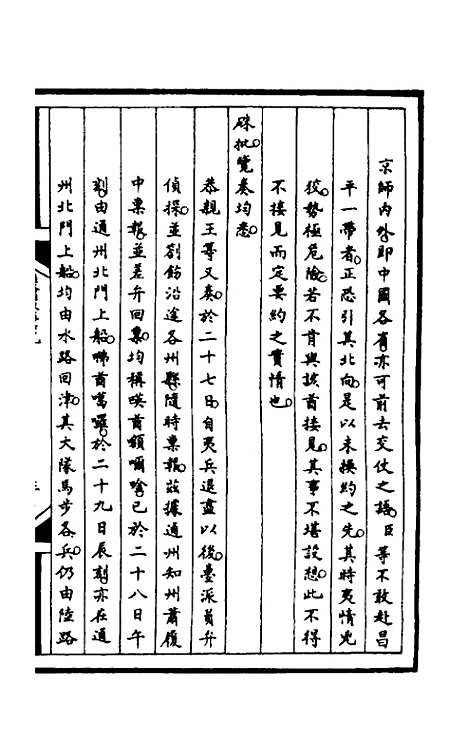 京師內外即中國各省亦可前去交仗之語臣等不敢赴昌
平一帶者正恐引其北向是以未換約之先其時夷情兇
狡勢極危險若不肯與該酋接見其事不堪設想此不得
不接見而定要約之實情也
硃批覽奏均悉
恭親王等又奏於二十七日自夷兵退盡以後疊派員弁
偵探並劄飭沿途各州縣隨時稟報茲據通州知州蕭復
中稟報並差弁回稟均稱暎酋額爾唫已於二十八日午
刻由通州北門上船咈酋噶囉於二十九日辰刻亦在通
州北門上船均由水路回津其大隊馬步各兵仍由陸路